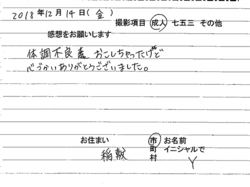 2018年12月14日(金)
撮影項目 成人 七五三 その他
感想をお願いします
体調不良者 おこしちゃったけど
ありがとうございました。
お住まい 市 お名前
稲敷 町 イニシャルで
村 Y